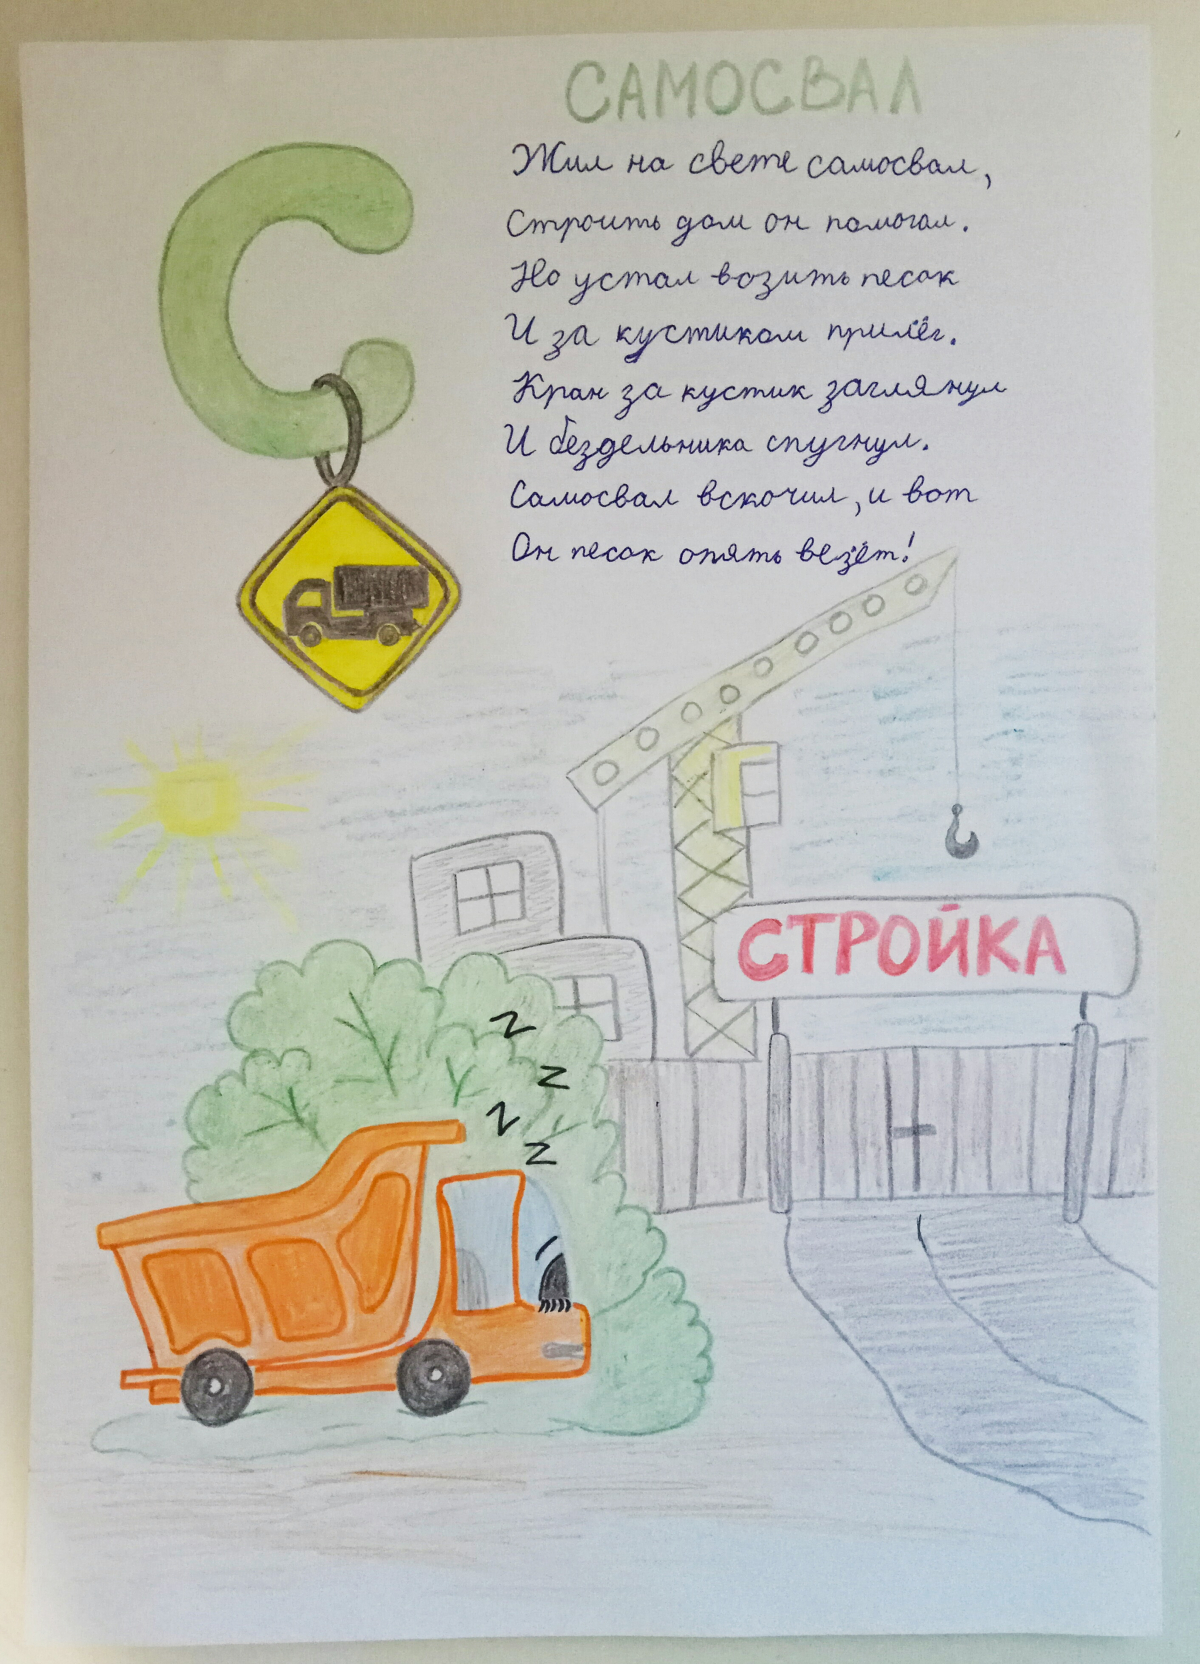 САМОСВАЛ
С
Жил на свете самосвал,
Строить дом он помогал.
Но устал возить песок
И за кустиком прилёг.
Кран за кустик заглянул
И бездельника спугнул.
Самосвал вскочил, и вот
Он песок опять везёт!
СТРОЙКА
z
z
z
z